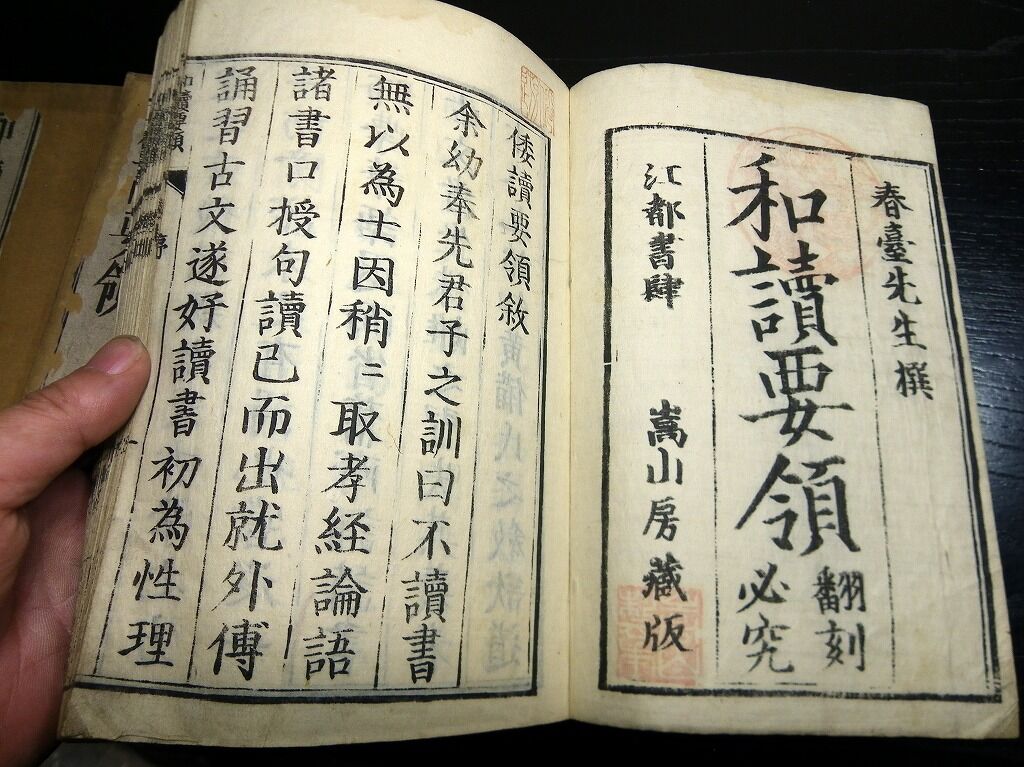 春臺先生撰
和讀要領
翻刻
必究
江都書肆 嵩山房藏版
倭讀要領敘
余幼奉先君子之訓曰不讀書
無以為士因稍〻取孝経論語
諸書口授句讀已而出就外傅
誦習古文遂好讀書初為性理
和讀要領
序